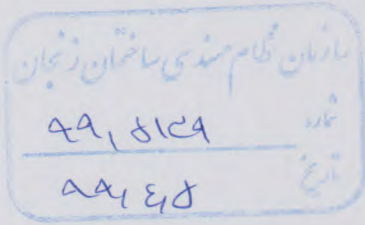 سازمان نظام مهندسی ساختمان زنجان
شماره ۹۹٫۵۱۳۹
تاریخ ۹۹٫۴٫۵